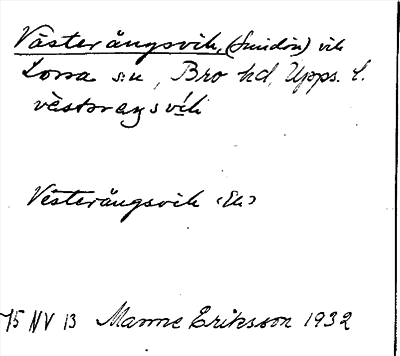 Västerängsvik, (Smidön) vik
Lossa sn, Bro hd, Upps. l.
vèstəraŋsvík
Vesterängsvik (Ek)
75 NV 13 Manne Eriksson 1932